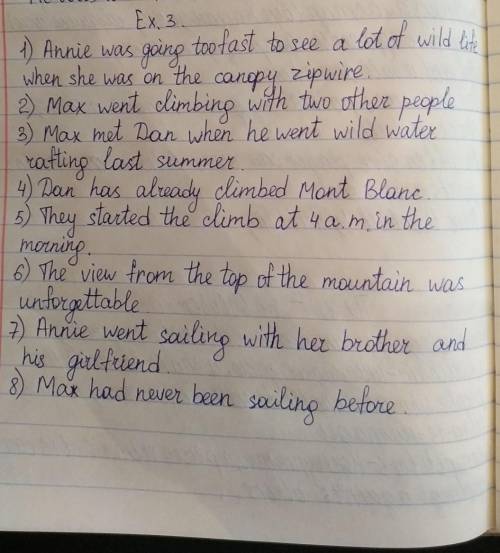 Ex. 3.
1) Annie was going too fast to see a lot of wild life
when she was on the canopy zipwire.
2) Max went climbing with two other people
3) Max met Dan when he went wild water
rafting last summer.
4) Dan has already climbed Mont Blanc.
5) They started the climb at 4 a.m. in the
morning.
6) The view from the top of the mountain was
unforgettable
7) Annie went sailing with her brother and
his girlfriend.
8) Max had never been sailing before.